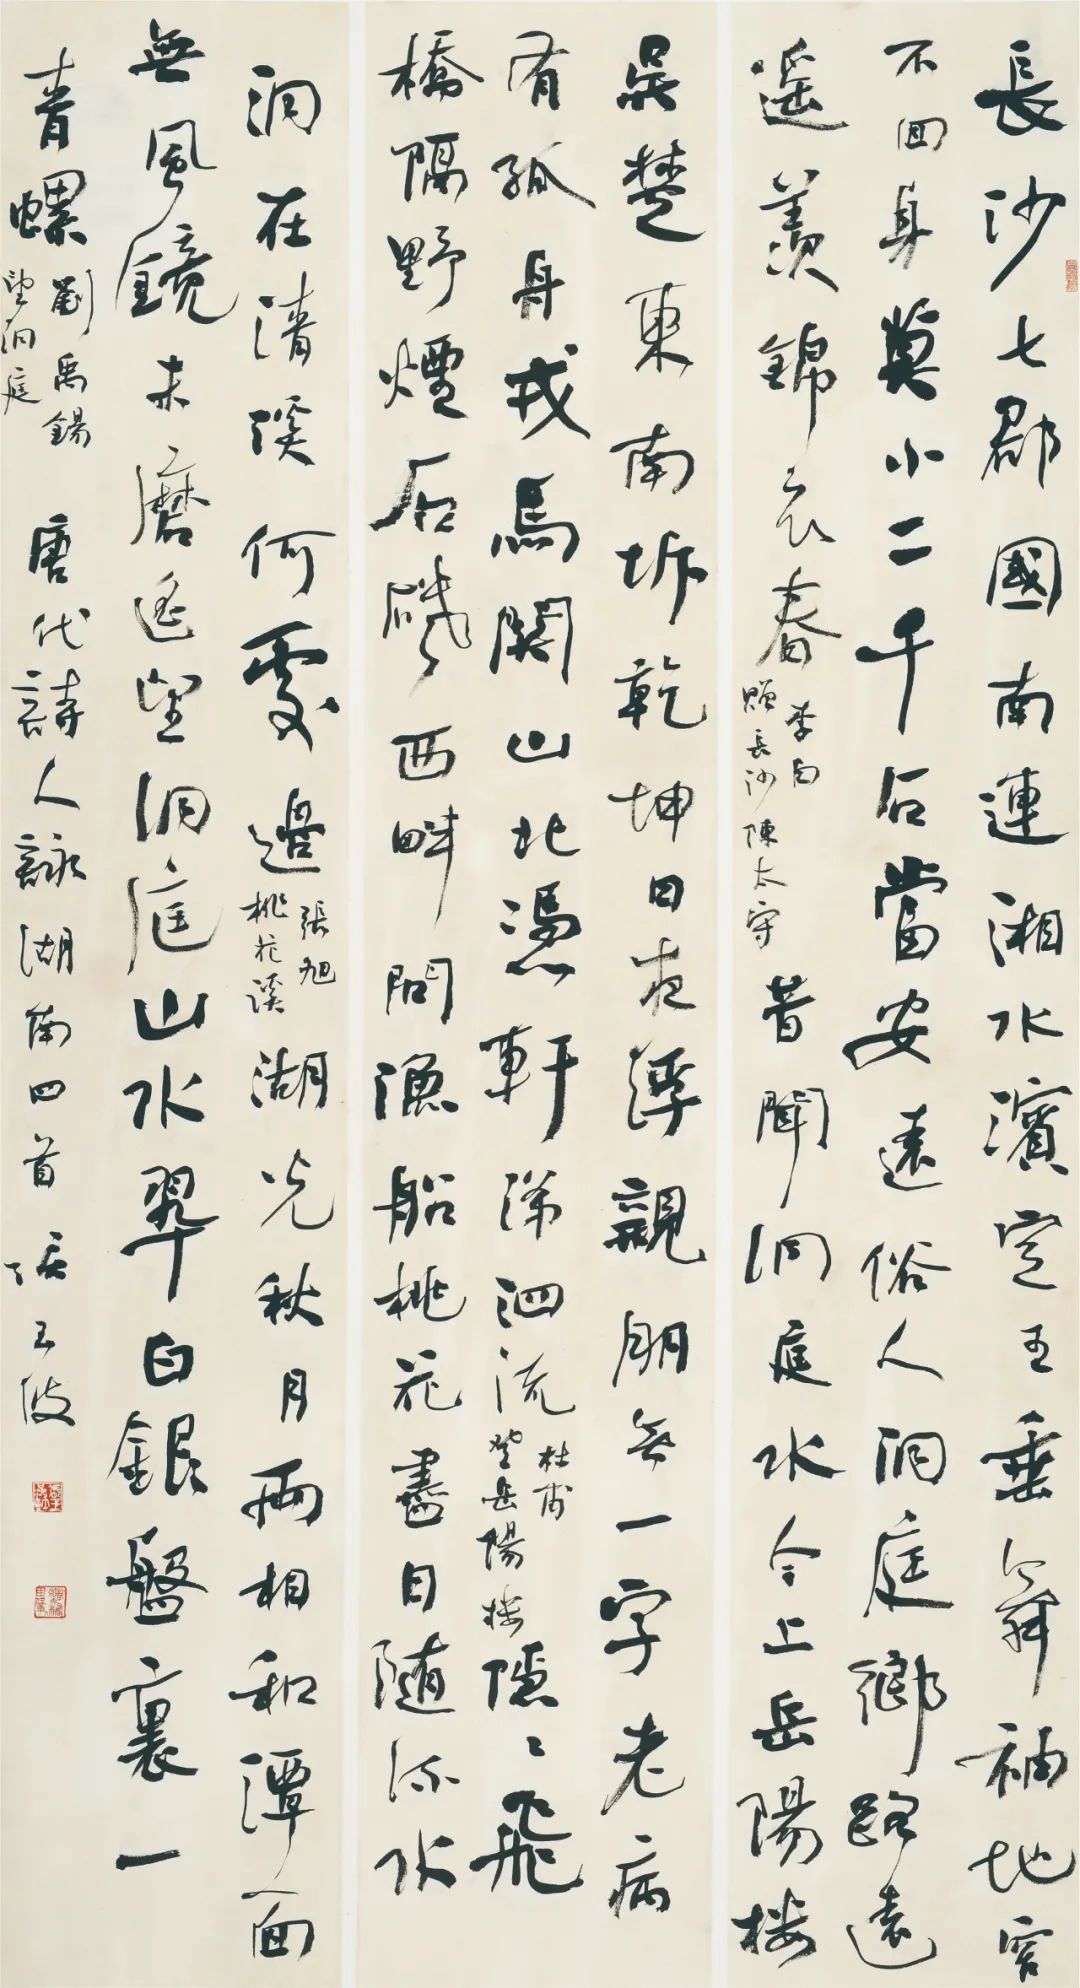 長沙七郡國南連湘水濱定王垂舞袖地窄
不回身莫小二千石當安遠俗人洞庭鄉路遠
遥羨錦衣春李白贈長沙陳太守昔聞洞庭水今上岳陽楼
吳楚東南坼乾坤日夜浮親朋无一字老病
有孤舟戎馬関山北憑軒涕泗流杜甫登岳陽楼隱〻飛
橋隔野煙石磯西畔問漁船桃花盡日随流水
洞在清溪何處邊張旭桃花溪湖光秋月兩相和潭面
無風鏡未磨遥望洞庭山水翠白銀盤裏一
青螺劉禹錫望洞庭唐代詩人詠湖南四首